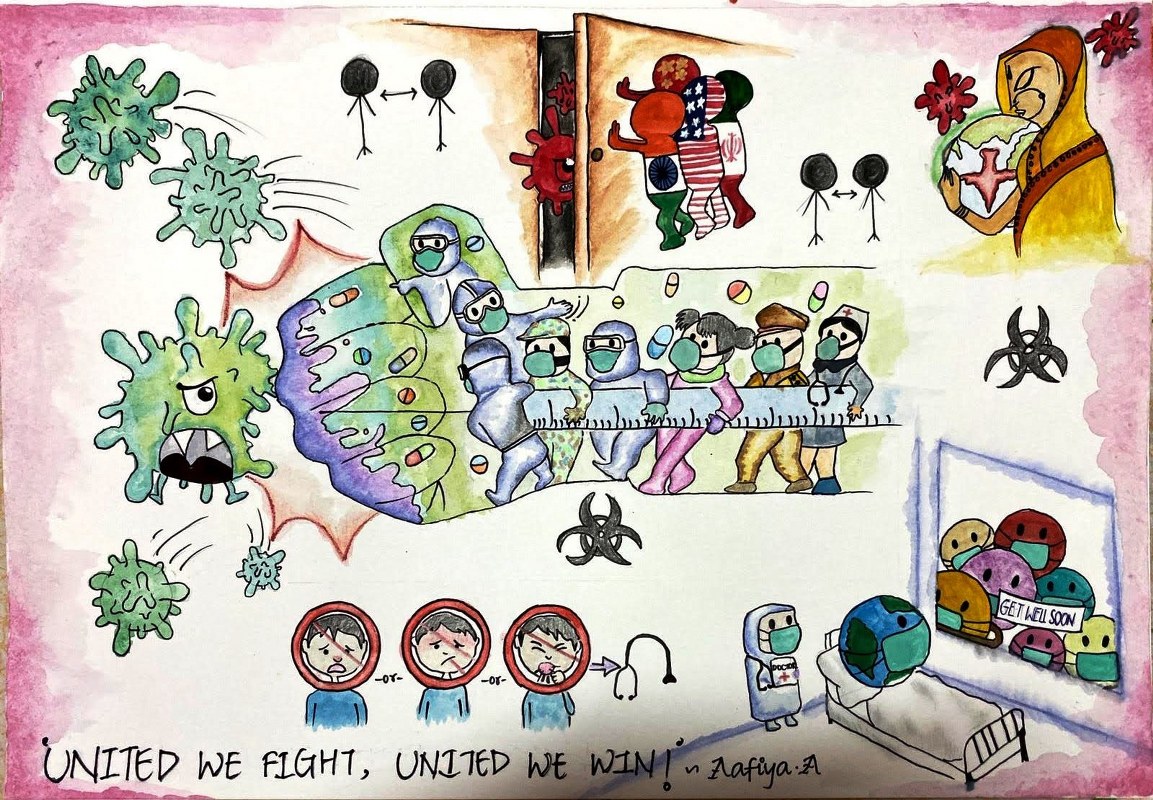 GET WELL SOON
-or-
-or-
DOCTOR
'UNITED WE FIGHT, UNITED WE WIN!' ~ Aafiya.A